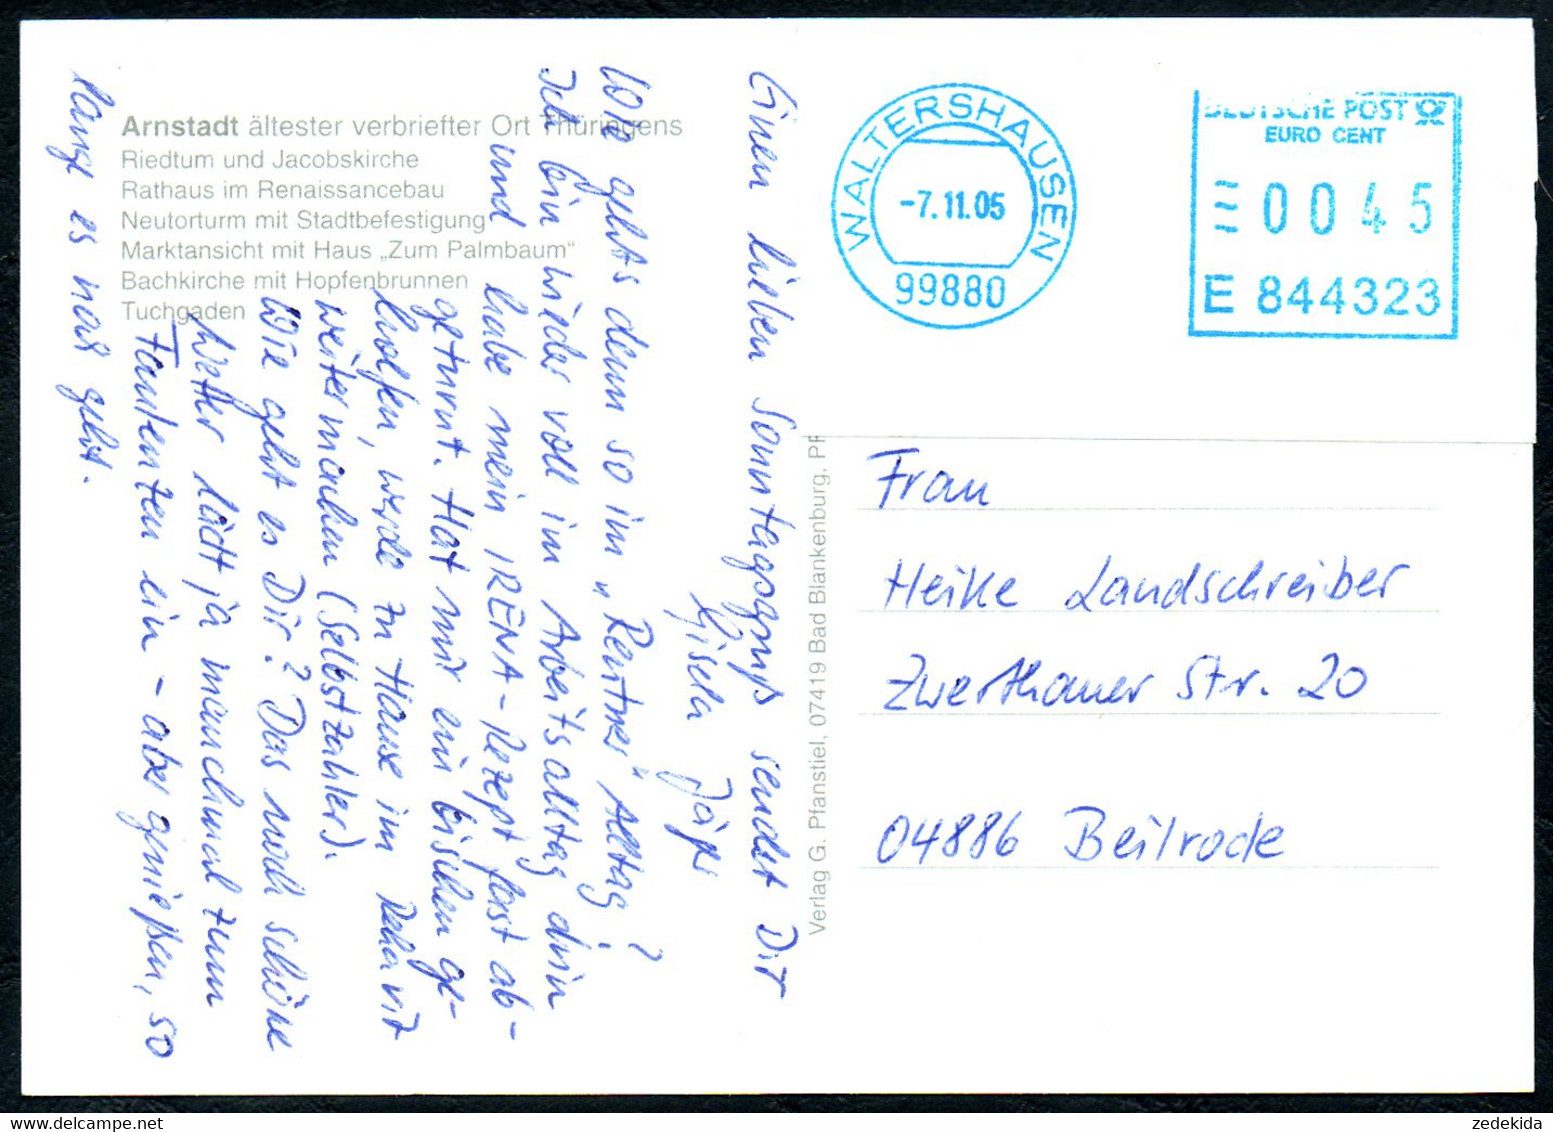 Arnstadt ältester verbriefter Ort Thüringens
Riedtum und Jacobskirche
Rathaus im Renaissancebau
Neutorturm mit Stadtbefestigung
Marktansicht mit Haus „Zum Palmbaum“
Bachkirche mit Hopfenbrunnen
Tuchgaden
Einen lieben Sonntagsgruß sendet Dir
Gisela
Wie gehts denn so im „Rentner“ Alltag?
Ich bin wieder voll im Arbeitsalltag drin
und habe mein IRENA-Rezept fast ab-
geturnt. Hat mir ein bischen ge-
holfen, werde zu Hause im Rehavit
weitermachen (Selbstzahler).
Wie geht es Dir? Das noch schöne
Wetter lädt ja manchmal zum
Faulenzen ein - aber genießen, so
lange es noch geht.
Verlag G. Pfanstiel, 07419 Bad Blankenburg, PF
WALTERSHAUSEN
-7.11.05
99880
DEUTSCHE POST
EURO CENT
0045
E 844323
Frau
Heike Landschreiber
Zwethauer Str. 20
04886 Beilrode
zedekida